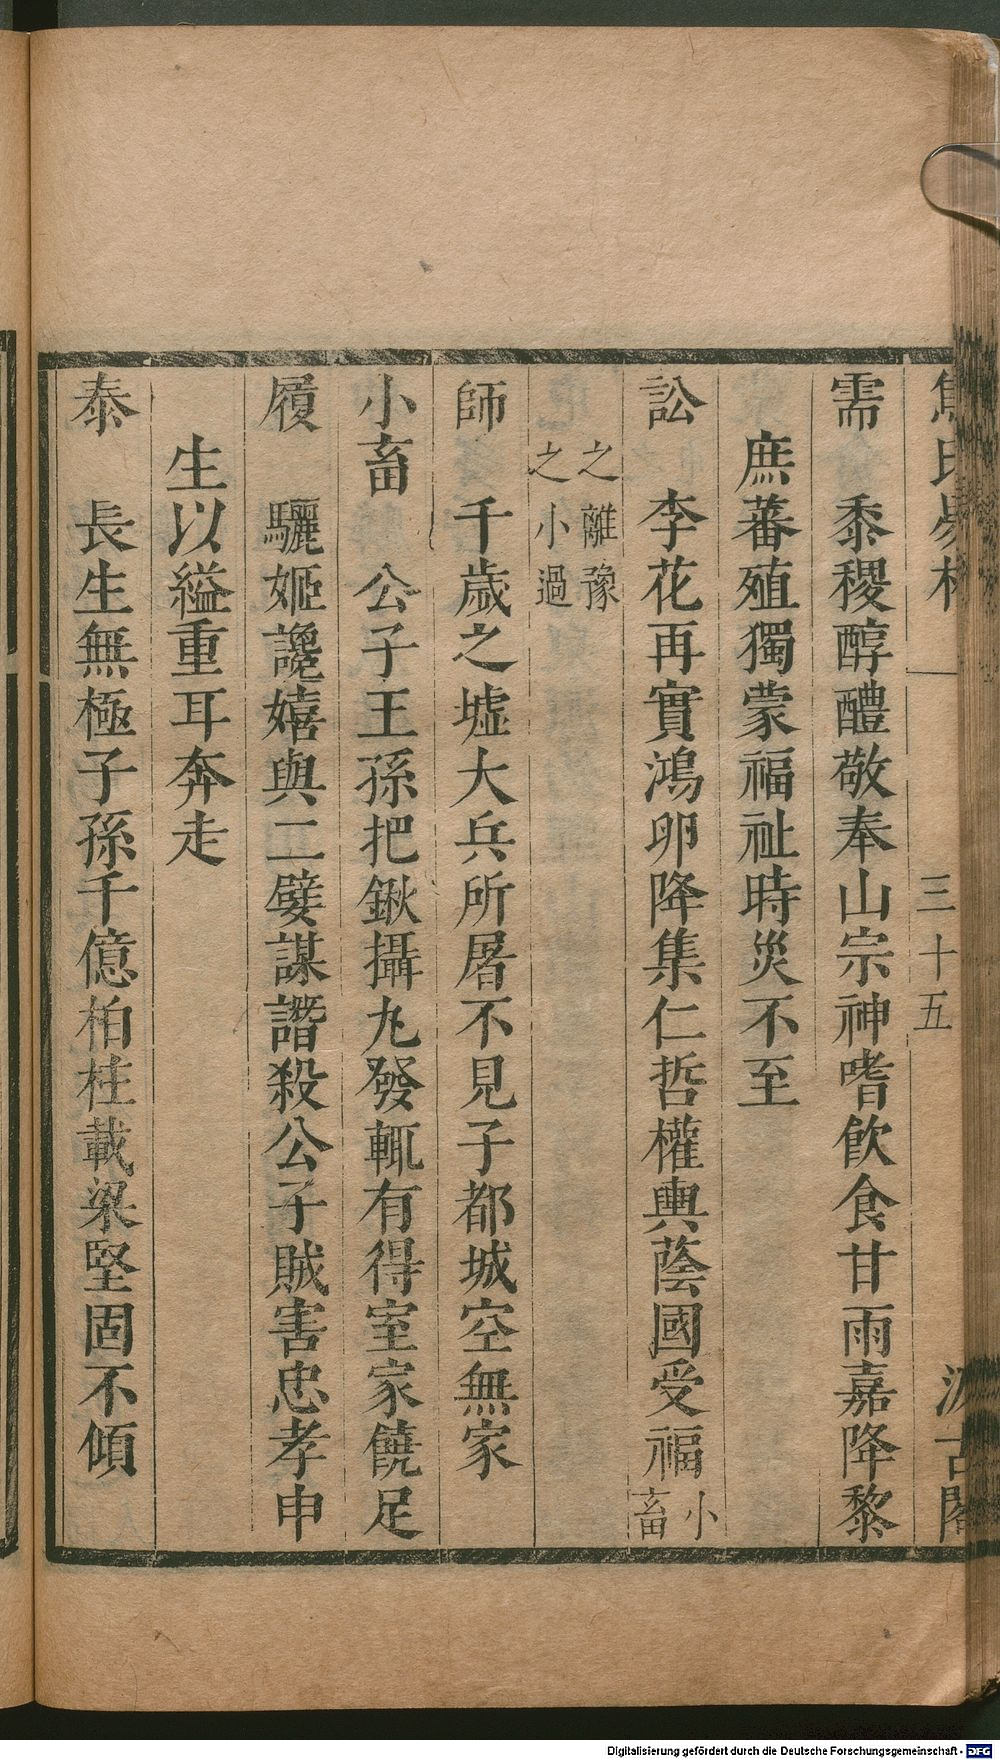 焦氏易林 一 三十五 汲古閣
需 黍稷醇醴敬奉山宗神嗜飲食甘雨嘉降黎
庶蕃殖獨蒙福祉時災不至
訟 李花再實鴻卵降集仁哲權輿蔭國受福小畜
之離豫之小過
師 千歲之墟大兵所屠不見子都城空無家
小畜 公子王孫把鍬攝丸發輒有得室家饒足
履 驪姬讒嬉與二孽謀譖殺公子賊害忠孝申
生以縊重耳奔走
泰 長生無極子孫千億柏柱載梁堅固不傾
Digitalisierung gefördert durch die Deutsche Forschungsgemeinschaft - DFG